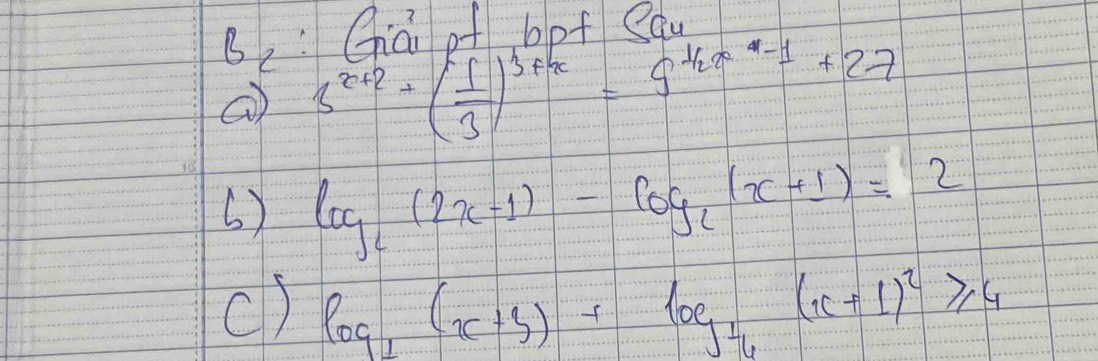 B₂: Giải pt, bpt sau
a) 3^{x+2} + (1/3)^{3+x} = 9^{1/2x - 1} + 27
b) log₂ (2x-1) - log₂ (x+1) = 2
c) log_1 (x+3) + log_{1/4} (x+1)² ≥ 4